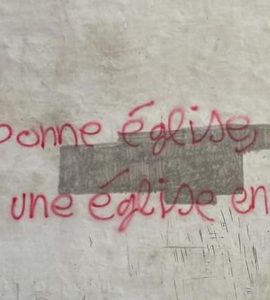 bonne église,
une église en